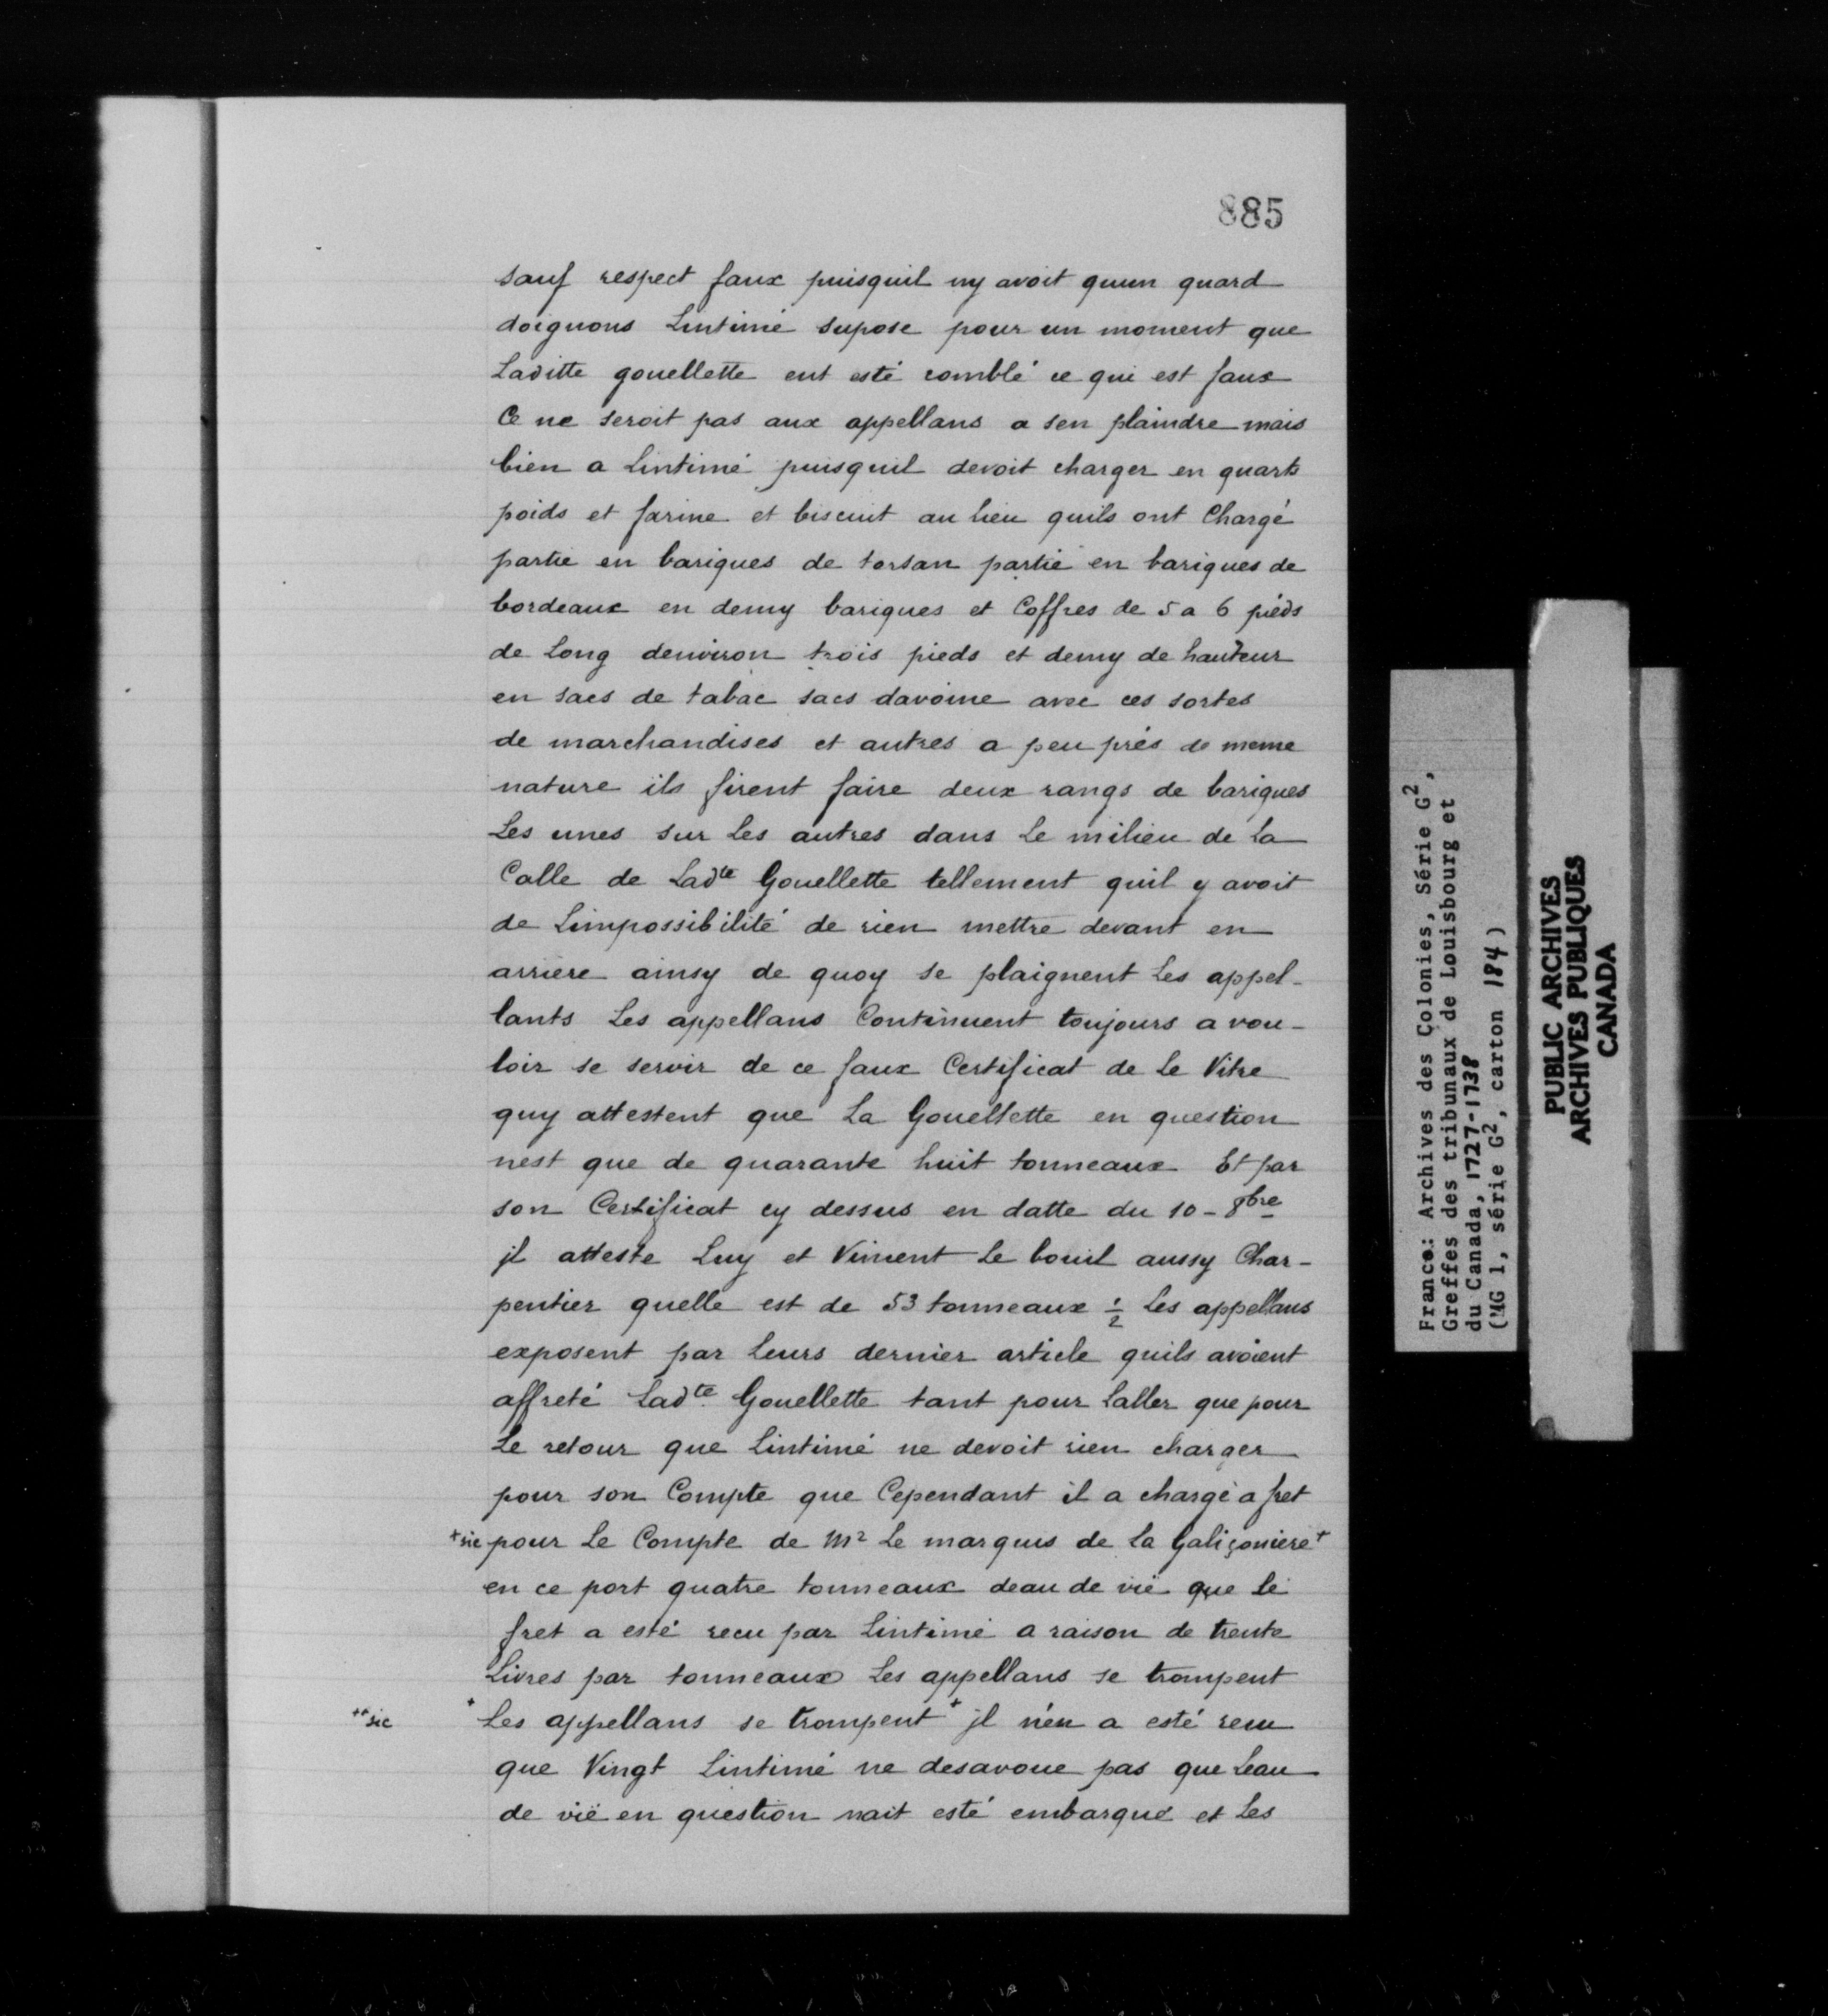 885
sauf respect faux puisquil ny avoit quun quard
doignons Lintimé supose pour un moment que
Laditte gouellette eut esté comblé ce qui est faux
Ce ne seroit pas aux appellans a sen plaindre mais
bien a Lintimé puisquil devoit charger en quarts
poids et farine et biscuit au lieu quils ont Chargé
partie en bariques de torsan partie en bariques de
bordeaux en demy bariques et Coffres de 5 a 6 pieds
de Long denviron trois pieds et demy de hauteur
en sacs de tabac sacs davoine avec ces sortes
de marchandises et autres a peu prés de meme
nature ils firent faire deux rangs de bariques
Les unes sur Les autres dans Le milieu de La
Calle de Ladte Gouellette tellement quil y avoit
de Limpossibilité de rien mettre devant en
arriere ainsy de quoy se plaignent Les appel-
lants Les appellans Continuent toujours a vou-
loir se servir de ce faux Certificat de Le Vitre
quy attestent que La Gouellette en question
nest que de quarante huit tonneaux Et par
son Certificat cy dessus en datte du 10 - 8bre
jl atteste Luy et Vincent Le bouil aussy Char-
pentier quelle est de 53 tonneaux ½ Les appellans
exposent par Leurs dernier article quils avoient
affreté Ladte Gouellette tant pour Laller que pour
Le retour que Lintimé ne devoit rien charger
pour son Compte que Cependant il a chargé a fret
+sic pour Le Compte de Mr Le marquis de la Galiçoniere+
en ce port quatre tonneaux deau de vie que Le
fret a esté recu par Lintimé a raison de trente
Livres par tonneaux Les appellans se trompent
++sic +Les appellans se trompent+ jl n'en a esté recu
que Vingt Lintimé ne desavoue pas que Leau
de vië en question nait esté embarqué et Les
France: Archives des Colonies, Série G2,
Greffes des tribunaux de Louisbourg et
du Canada, 1727-1738
(MG 1, série G2, carton 184)
PUBLIC ARCHIVES
ARCHIVES PUBLIQUES
CANADA